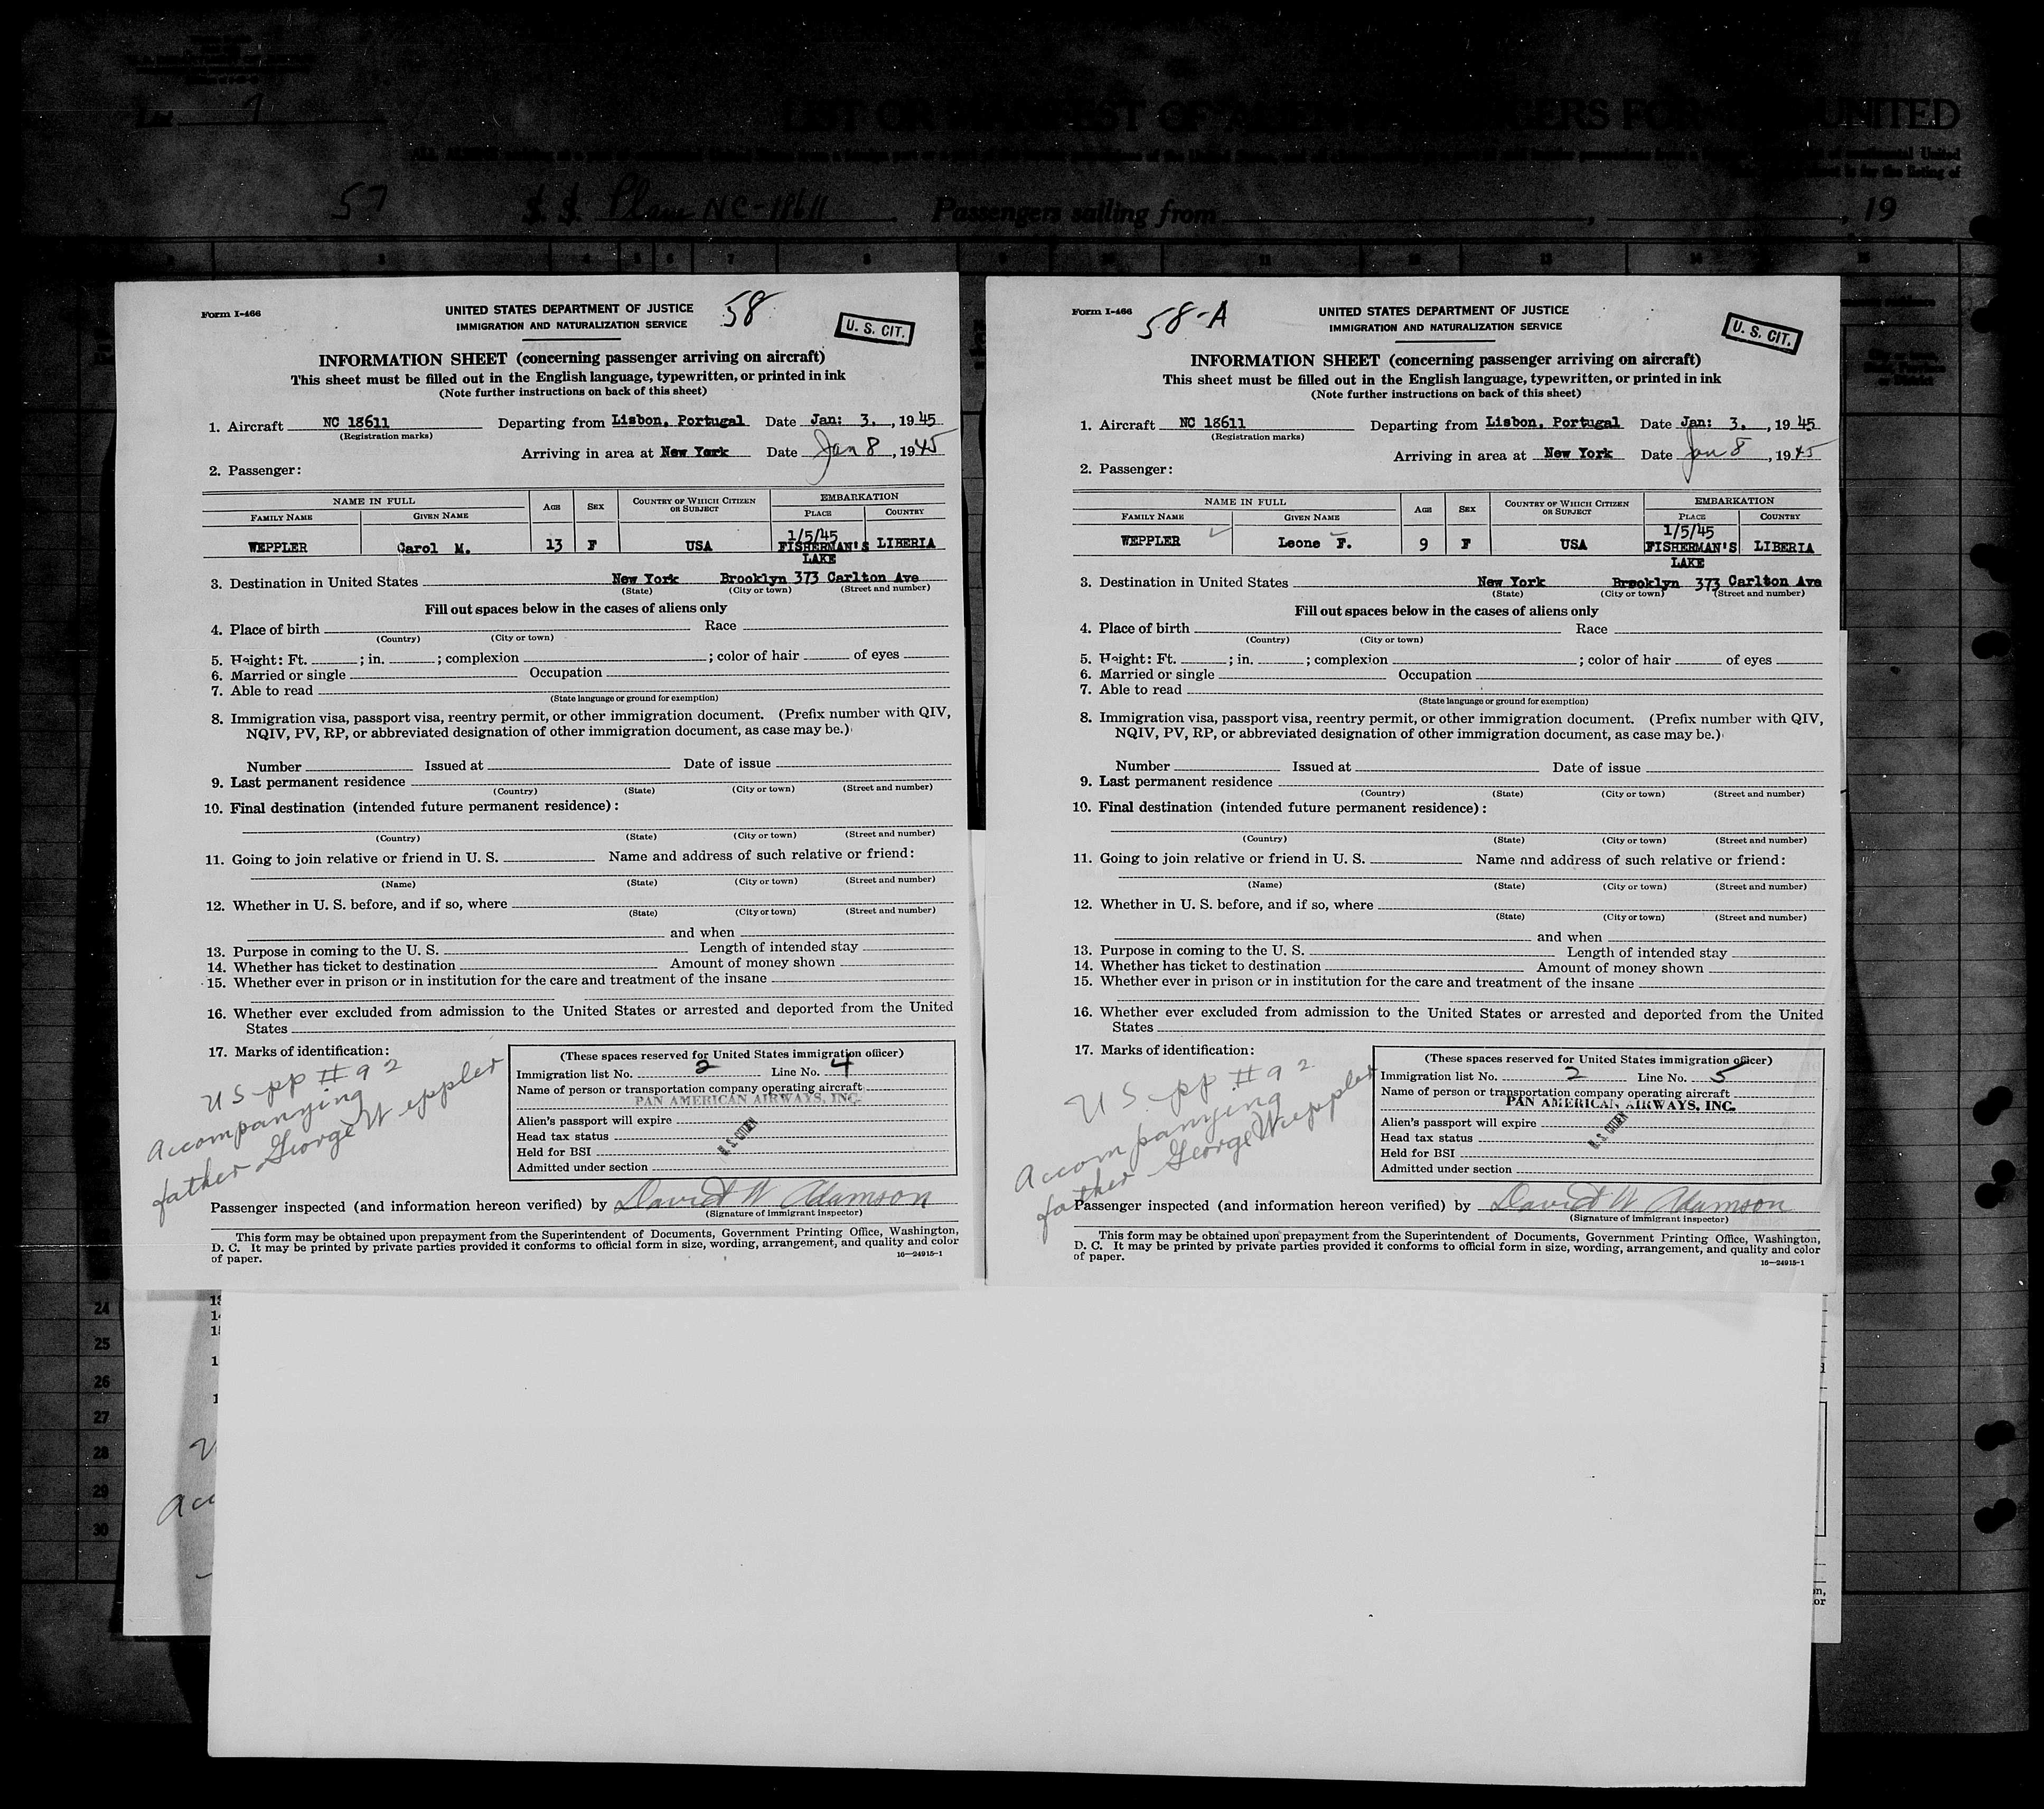 LIST OR MANIFEST OF ALIEN PASSENGERS FOR THE UNITED
List 7
57
S. S. Plane NC-18611 Passengers sailing from , , 19
Form I-466
UNITED STATES DEPARTMENT OF JUSTICE
58
IMMIGRATION AND NATURALIZATION SERVICE
U. S. CIT.
INFORMATION SHEET (concerning passenger arriving on aircraft)
This sheet must be filled out in the English language, typewritten, or printed in ink
(Note further instructions on back of this sheet)
1. Aircraft NC 18611 Departing from Lisbon, Portugal Date Jan: 3. , 1945
(Registration marks)
Arriving in area at New York Date Jan 8 , 1945
2. Passenger:
NAME IN FULL AGE SEX COUNTRY OF WHICH CITIZEN OR SUBJECT EMBARKATION
FAMILY NAME GIVEN NAME PLACE COUNTRY
1/5/45
WEPPLER Carol M. 13 F USA FISHERMAN'S LIBERIA
LAKE
3. Destination in United States New York Brooklyn 373 Carlton Ave
(State) (City or town) (Street and number)
Fill out spaces below in the cases of aliens only
4. Place of birth Race
(Country) (City or town)
5. Height: Ft. ; in. ; complexion ; color of hair of eyes
6. Married or single Occupation
7. Able to read
(State language or ground for exemption)
8. Immigration visa, passport visa, reentry permit, or other immigration document. (Prefix number with QIV,
NQIV, PV, RP, or abbreviated designation of other immigration document, as case may be.)
Number Issued at Date of issue
9. Last permanent residence
(Country) (State) (City or town) (Street and number)
10. Final destination (intended future permanent residence):
(Country) (State) (City or town) (Street and number)
11. Going to join relative or friend in U. S. Name and address of such relative or friend:
(Name) (State) (City or town) (Street and number)
12. Whether in U. S. before, and if so, where
(State) (City or town) (Street and number)
and when
13. Purpose in coming to the U. S. Length of intended stay
14. Whether has ticket to destination Amount of money shown
15. Whether ever in prison or in institution for the care and treatment of the insane
16. Whether ever excluded from admission to the United States or arrested and deported from the United
States
17. Marks of identification:
US pp # 92
Accompanying
father George Weppler
(These spaces reserved for United States immigration officer)
Immigration list No. 2 Line No. 4
Name of person or transportation company operating aircraft
PAN AMERICAN AIRWAYS, INC.
Alien's passport will expire
Head tax status
U. S. CITIZEN
Held for BSI
Admitted under section
Passenger inspected (and information hereon verified) by David W Adamson
(Signature of immigrant inspector)
This form may be obtained upon prepayment from the Superintendent of Documents, Government Printing Office, Washington,
D. C. It may be printed by private parties provided it conforms to official form in size, wording, arrangement, and quality and color
of paper.
16—24915-1
Form I-466
58-A
UNITED STATES DEPARTMENT OF JUSTICE
IMMIGRATION AND NATURALIZATION SERVICE
U. S. CIT.
INFORMATION SHEET (concerning passenger arriving on aircraft)
This sheet must be filled out in the English language, typewritten, or printed in ink
(Note further instructions on back of this sheet)
1. Aircraft NC 18611 Departing from Lisbon, Portugal Date Jan: 3. , 1945
(Registration marks)
Arriving in area at New York Date Jan 8 , 1945
2. Passenger:
NAME IN FULL AGE SEX COUNTRY OF WHICH CITIZEN OR SUBJECT EMBARKATION
FAMILY NAME GIVEN NAME PLACE COUNTRY
1/5/45
WEPPLER Leone F. 9 F USA FISHERMAN'S LIBERIA
LAKE
3. Destination in United States New York Brooklyn 373 Carlton Ave
(State) (City or town) (Street and number)
Fill out spaces below in the cases of aliens only
4. Place of birth Race
(Country) (City or town)
5. Height: Ft. ; in. ; complexion ; color of hair of eyes
6. Married or single Occupation
7. Able to read
(State language or ground for exemption)
8. Immigration visa, passport visa, reentry permit, or other immigration document. (Prefix number with QIV,
NQIV, PV, RP, or abbreviated designation of other immigration document, as case may be.)
Number Issued at Date of issue
9. Last permanent residence
(Country) (State) (City or town) (Street and number)
10. Final destination (intended future permanent residence):
(Country) (State) (City or town) (Street and number)
11. Going to join relative or friend in U. S. Name and address of such relative or friend:
(Name) (State) (City or town) (Street and number)
12. Whether in U. S. before, and if so, where
(State) (City or town) (Street and number)
and when
13. Purpose in coming to the U. S. Length of intended stay
14. Whether has ticket to destination Amount of money shown
15. Whether ever in prison or in institution for the care and treatment of the insane
16. Whether ever excluded from admission to the United States or arrested and deported from the United
States
17. Marks of identification:
US pp # 92
Accompanying
father George Weppler
(These spaces reserved for United States immigration officer)
Immigration list No. 2 Line No. 5
Name of person or transportation company operating aircraft
PAN AMERICAN AIRWAYS, INC.
Alien's passport will expire
Head tax status
U. S. CITIZEN
Held for BSI
Admitted under section
Passenger inspected (and information hereon verified) by David W Adamson
(Signature of immigrant inspector)
This form may be obtained upon prepayment from the Superintendent of Documents, Government Printing Office, Washington,
D. C. It may be printed by private parties provided it conforms to official form in size, wording, arrangement, and quality and color
of paper.
16—24915-1
24
25
26
27
28
29
30